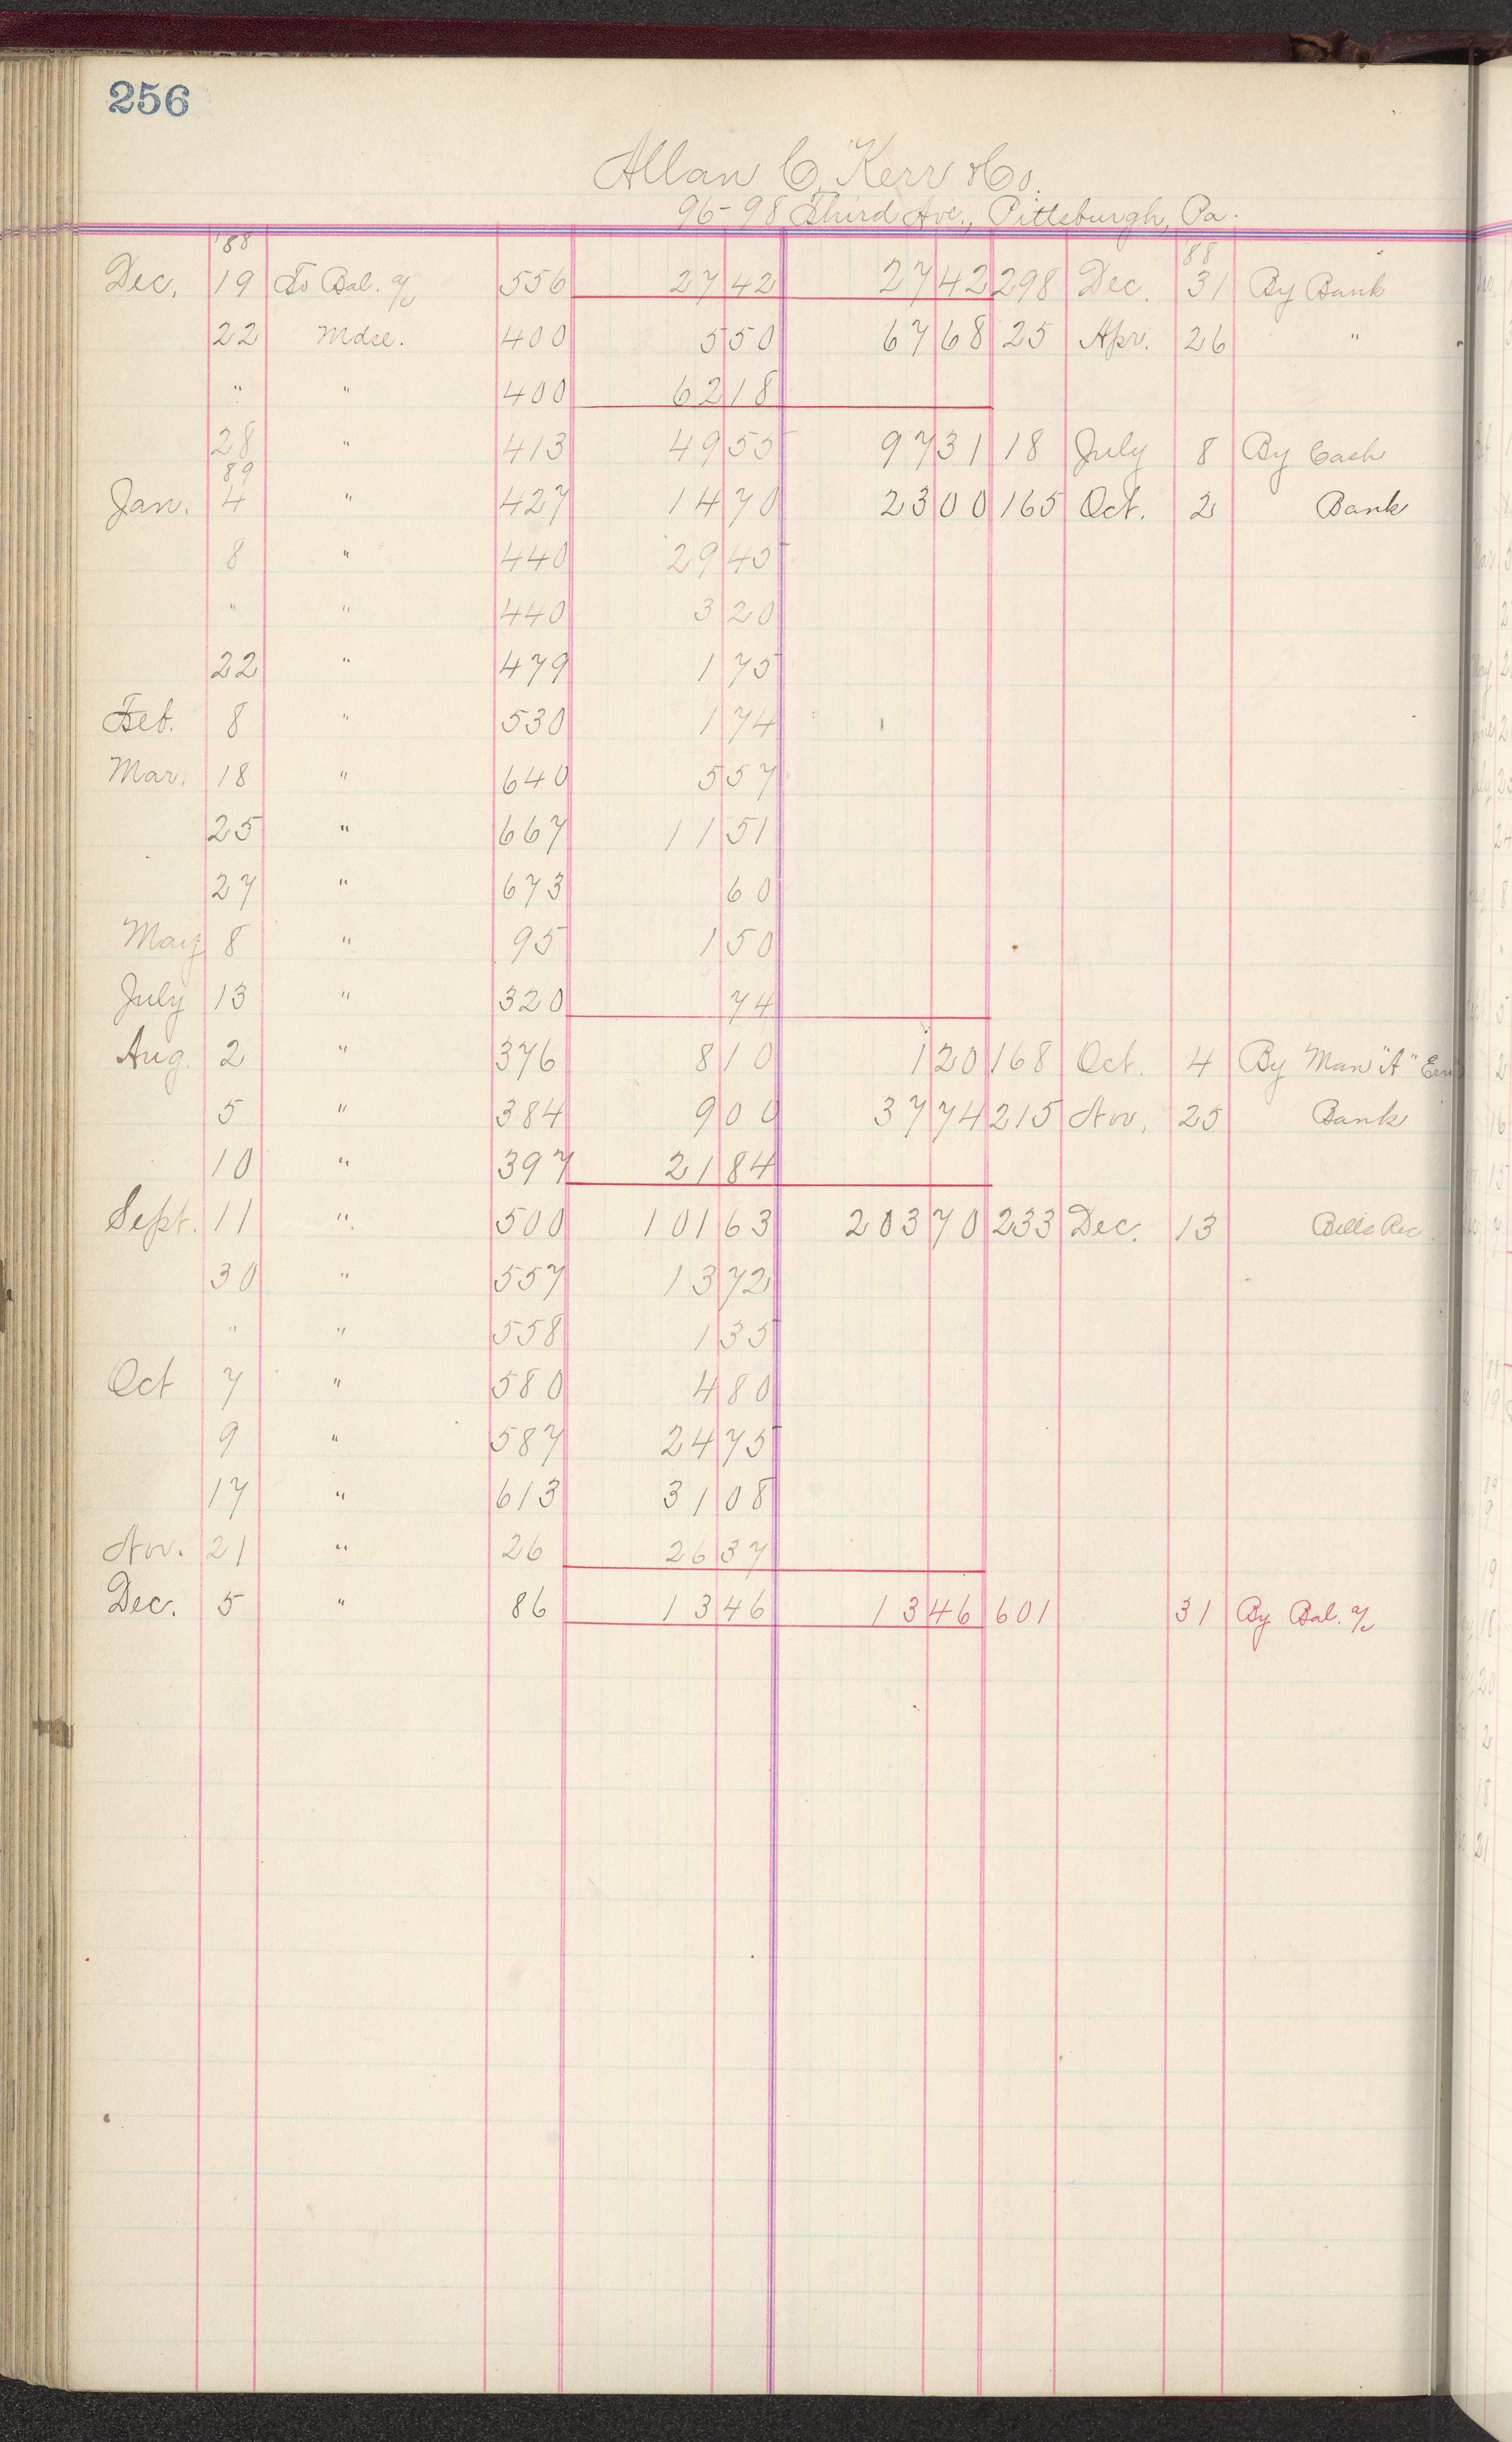 256
Allan C. Kerr & Co.
96-98 Third Ave., Pittsburgh, Pa.
'88 88
Dec. 19 To Bal. a/c 556 27 42 27 42 298 Dec. 31 By Bank
22 Mdse. 400 5 50 67 68 25 Apr. 26 "
" " 400 62 18
28 " 413 49 55 97 31 18 July 8 By Cash
89
Jan. 4 " 427 14 70 23 00 165 Oct. 2 Bank
8 " 440 29 45
" " 440 3 20
22 " 479 1 75
Feb. 8 " 530 1 74
Mar. 18 " 640 5 57
25 " 667 11 51
27 " 673 60
May 8 " 95 1 50
July 13 " 320 74
Aug. 2 " 376 8 10 1 20 168 Oct. 4 By Man "A"
5 " 384 9 00 37 74 215 Nov. 25 Bank
10 " 397 21 84
Sept. 11 " 500 101 63 203 70 233 Dec. 13 Bills Rec.
30 " 557 13 72
" " 558 1 35
Oct 7 " 580 4 80
9 " 587 24 75
17 " 613 31 08
Nov. 21 " 26 26 37
Dec. 5 " 86 13 46 13 46 601 31 By Bal. a/c